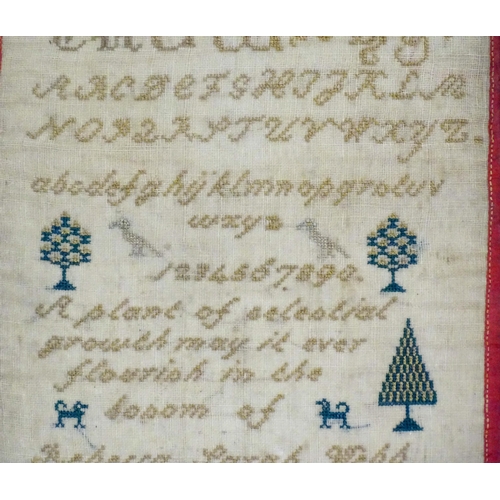 A B C D E F G H I J K L M
N O P Q R S T U V W X Y Z.
abcdefghijklmnopqrstuv
wxyz
1234567890.
A plant of selestial
growth may it ever
flourish in the
bosom of